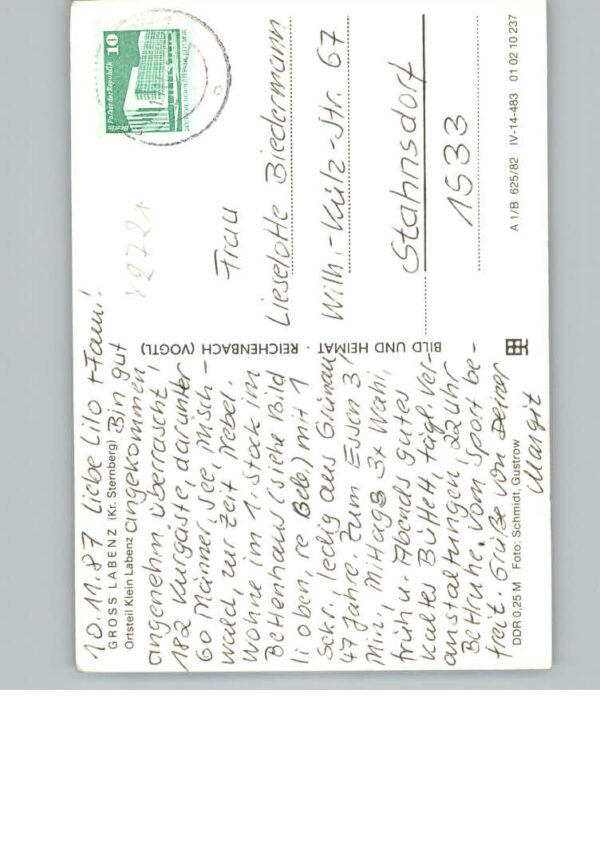 10.11.87 Liebe Lilo + Fam.!
GROSS LABENZ (Kr. Sternberg) Bin gut
Ortsteil Klein Labenz angekommen
angenehm überrascht,
182 Kurgäste, darunter
60 Männer, See, Misch-
wald, zur Zeit Nebel.
Wohne im 1. Stock im
Bettenhaus (siehe Bild
li oben, re Beb.) mit 1
Sekr., ledig aus Grünau
47 Jahre. Zum Essen 3
Min., Mittags 3x Wahl,
früh u. Abends gutes
Kaltes Büffett, tägl. Ver-
anstaltungen, 22 Uhr
Bettruhe. Vom Sport be-
freit. Grüße von Deiner
Margit
DDR 0,25 M Foto: Schmidt, Gustrow
BILD UND HEIMAT · REICHENBACH (VOGTL)
10
Palast der Republik
Berlin
Frau
Lieselotte Biedermann
Wilh.-Külz-Str. 67
Stahnsdorf
1533
A 1/B 625/82 IV-14-483 01 02 10 237